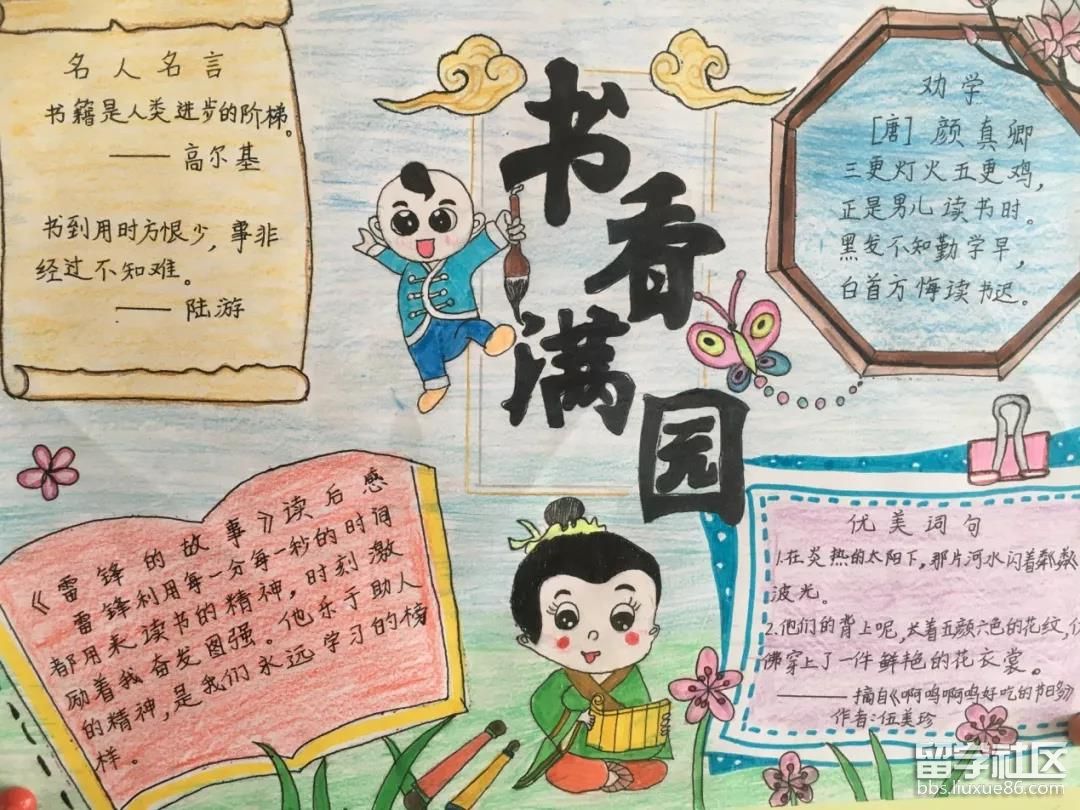 名人名言
书籍是人类进步的阶梯。
——高尔基
书到用时方恨少，事非
经过不知难。
——陆游
书香满园
劝学
[唐] 颜真卿
三更灯火五更鸡，
正是男儿读书时。
黑发不知勤学早，
白首方悔读书迟。
《雷锋的故事》读后感
雷锋利用每一分每一秒的时间
都用来读书的精神，时刻激
励着我奋发图强。他乐于助人
的精神，是我们永远学习的榜
样。
优美词句
1.在炎热的太阳下，那片河水闪着粼粼
波光。
2.他们的背上呢，长着五颜六色的花纹，仿
佛穿上了一件鲜艳的花衣裳。
——摘自《啊呜啊呜好吃的节日》
作者:伍美珍
留学社区
bbs.liuxue86.com